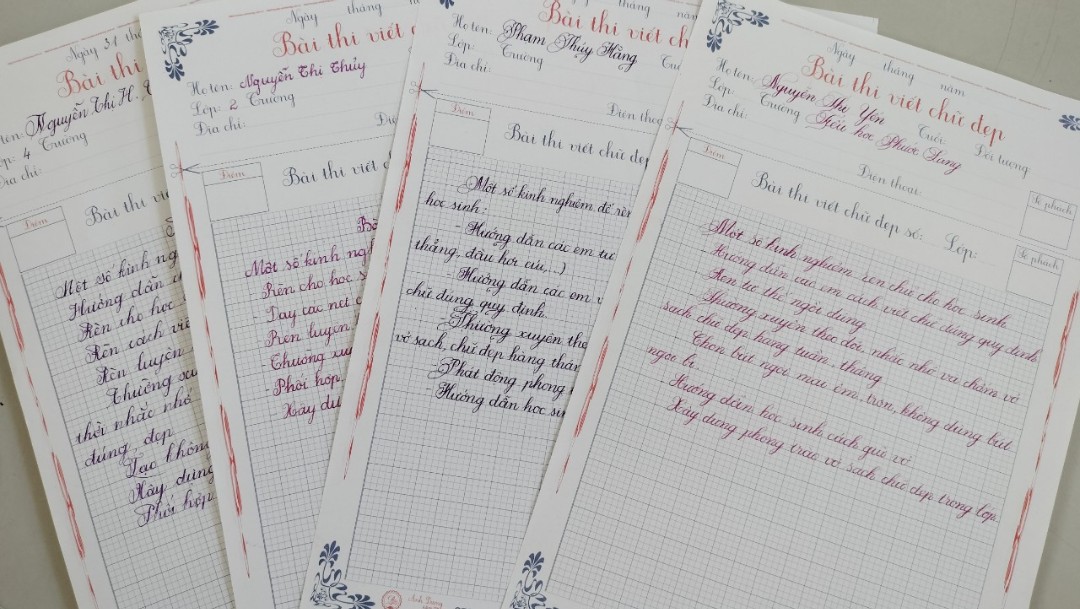 Ngày 31
Bài thi
Họ tên: Nguyễn Thị H.
Lớp: 4 Trường
Địa chỉ:
Điểm
Bài thi viết
Một số kinh ng
Hướng dẫn
Rèn cho học
Rèn cách viế
Rèn luyện
Thường xu
thời nhắc nhở
đúng, đẹp
Tạo không
Xây dựng
Phối hợp
Ngày tháng
Bài thi viết c
Họ tên: Nguyễn Thị Thủy
Lớp: 2 Trường
Địa chỉ:
Điểm
Bài thi viết ch
Một số kinh ng
- Rèn cho học s
- Dạy các nét c
Rèn luyện
- Thường xuy
- Phối hợp
- Xây dự
tháng năm
Bài thi viết ch
Họ tên: Phạm Thúy Hằng
Lớp: Trường
Địa chỉ:
Điện thoạ
Điểm
Bài thi viết chữ đẹp
Một số kinh nghiệm để rèn
học sinh:
- Hướng dẫn các em tư
thẳng, đầu hơi cúi,...)
- Hướng dẫn các em v
chữ đúng quy định.
- Thường xuyên the
vở sạch, chữ đẹp hàng thán
- Phát động phong
- Hướng dẫn học sin
Ánh Dương
Ngày tháng năm
Bài thi viết chữ đẹp
Họ tên: Nguyễn Thị Yên Tuổi: Đối tượng
Lớp: Trường Tiểu học Phước Lung
Địa chỉ: Điện thoại:
Số phách
Điểm
Bài thi viết chữ đẹp số: Lớp:
Số phách
Một số kinh nghiệm rèn chữ cho học sinh
- Hướng dẫn các em cách viết chữ đúng quy định
- Rèn tư thế ngồi đúng
- Thường xuyên theo dõi, nhắc nhở và chấm vở
sạch chữ đẹp hàng tuần, tháng
- Chọn bút ngòi mài êm, trơn, không dùng bút
ngòi bi.
- Hướng dẫn học sinh cách giữ vở
Xây dựng phong trào vở sạch chữ đẹp trong lớp.